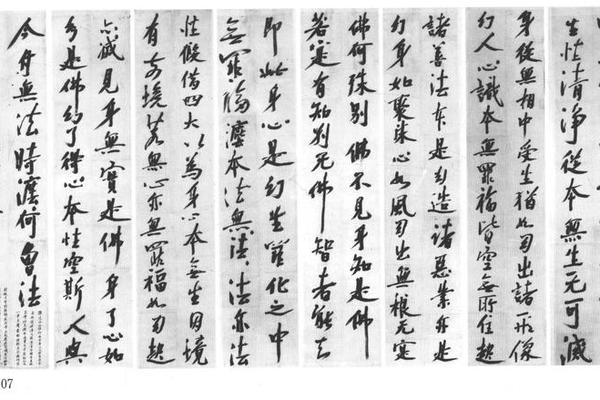 生性清淨從本無生无可滅
身從無相中受生猶如幻出諸形像
幻人心識本無罪福皆空無所住起
諸善法本是幻造諸惡業亦是
幻身如聚沫心如風幻出無根无實
佛何殊別佛不見身知是佛
若實有知別无佛智者能
即此身心是幻生罪化之中
無罪福灋本法無法法亦法
性假借四大以為身心本無生因境
有前境若無心亦無罪福如幻起
亦滅見身無實是佛身了心如
幻是佛幻了得心本性空斯人與
今付無法時灋何曾法
07